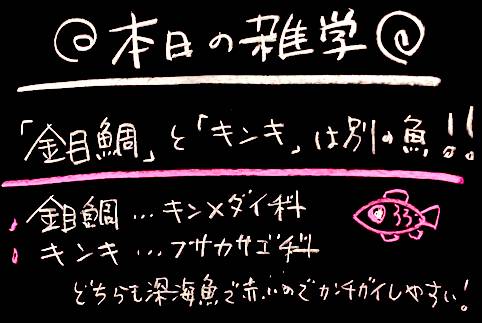 @本日の雑学@
「金目鯛」と「キンキ」は別の魚!!
金目鯛…キンメダイ科
キンキ…フサカサゴ科
どちらも深海魚で赤いのでカンチガイしやすい!